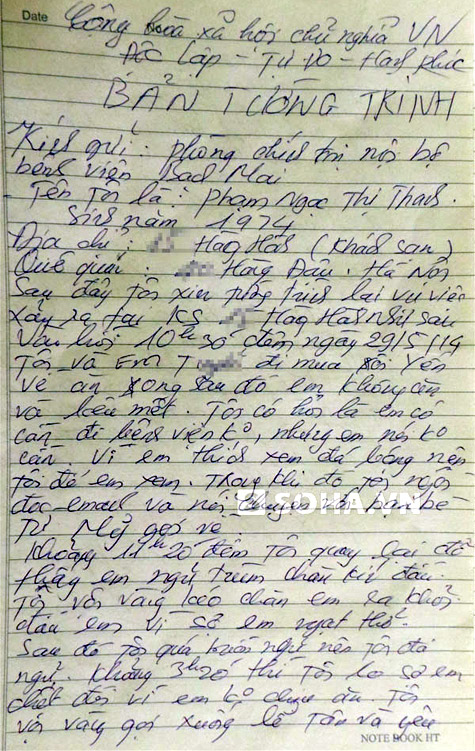 Date
Cộng hòa xã hội chủ nghĩa VN
Độc Lập - Tự Do - Hạnh phúc
BẢN TƯỜNG TRÌNH
Kính gửi: phòng chính trị nội bộ
bệnh viện Bạch Mai
Tên Tôi là: Phạm Ngọc Thị Thanh.
Sinh năm 1974
Địa chỉ: Hàng Hành (Khách sạn)
Quê quán: Hàng Đậu. Hà Nội
Sau đây Tôi xin tường trình lại vụ việc
xảy ra tại KS Hàng Hành như sau
Vào hồi 10h 30 đêm ngày 29/5/14
Tôi và Em T đi mua xôi Yến
về ăn xong sau đó em không ăn
và kêu mệt. Tôi có hỏi là em có
cần đi bệnh viện k°, nhưng em nói k°
cần. Vì em thích xem đá bóng nên
tôi để em xem. Trong khi đó tôi ngồi
đọc email và nói chuyện với bạn bè
Từ Mỹ gọi về
SOHA.VN
Khoảng 11h 20 đêm Tôi quay lại đã
thấy em ngủ trùm chăn kín đầu.
Tôi vội vàng kéo chăn em ra khỏi
đầu em vì sợ em ngạt thở.
Sau đó tôi quá buồn ngủ nên tôi đã
ngủ. Khoảng 3h 20 thì Tôi lo sợ em
chết đói vì em k° chịu ăn Tôi
vội vàng gọi xuống lễ tân và yêu
NOTE BOOK HT